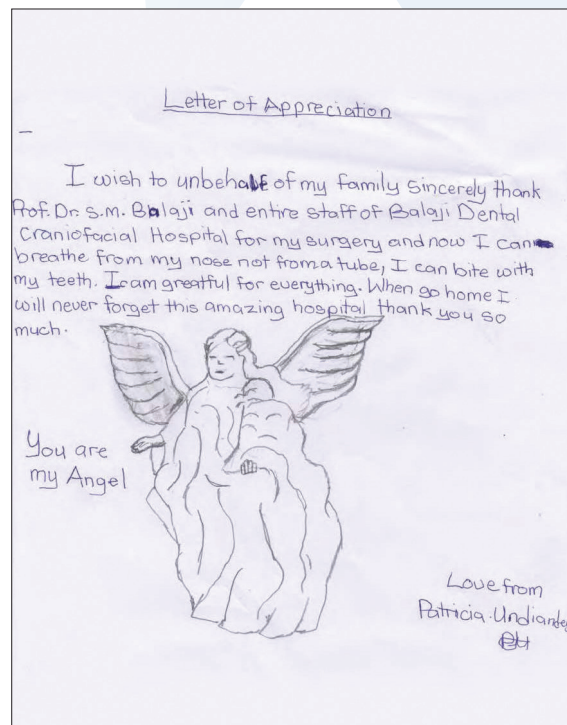 Letter of Appreciation
I wish to unbehalf of my family sincerely thank
Prof. Dr. S.M. Balaji and entire staff of Balaji Dental
Craniofacial Hospital for my surgery and now I can
breathe from my nose not from a tube, I can bite with
my teeth. I am greatful for everything. When go home I
will never forget this amazing hospital thank you so
much.
You are
my Angel
Love from
Patricia